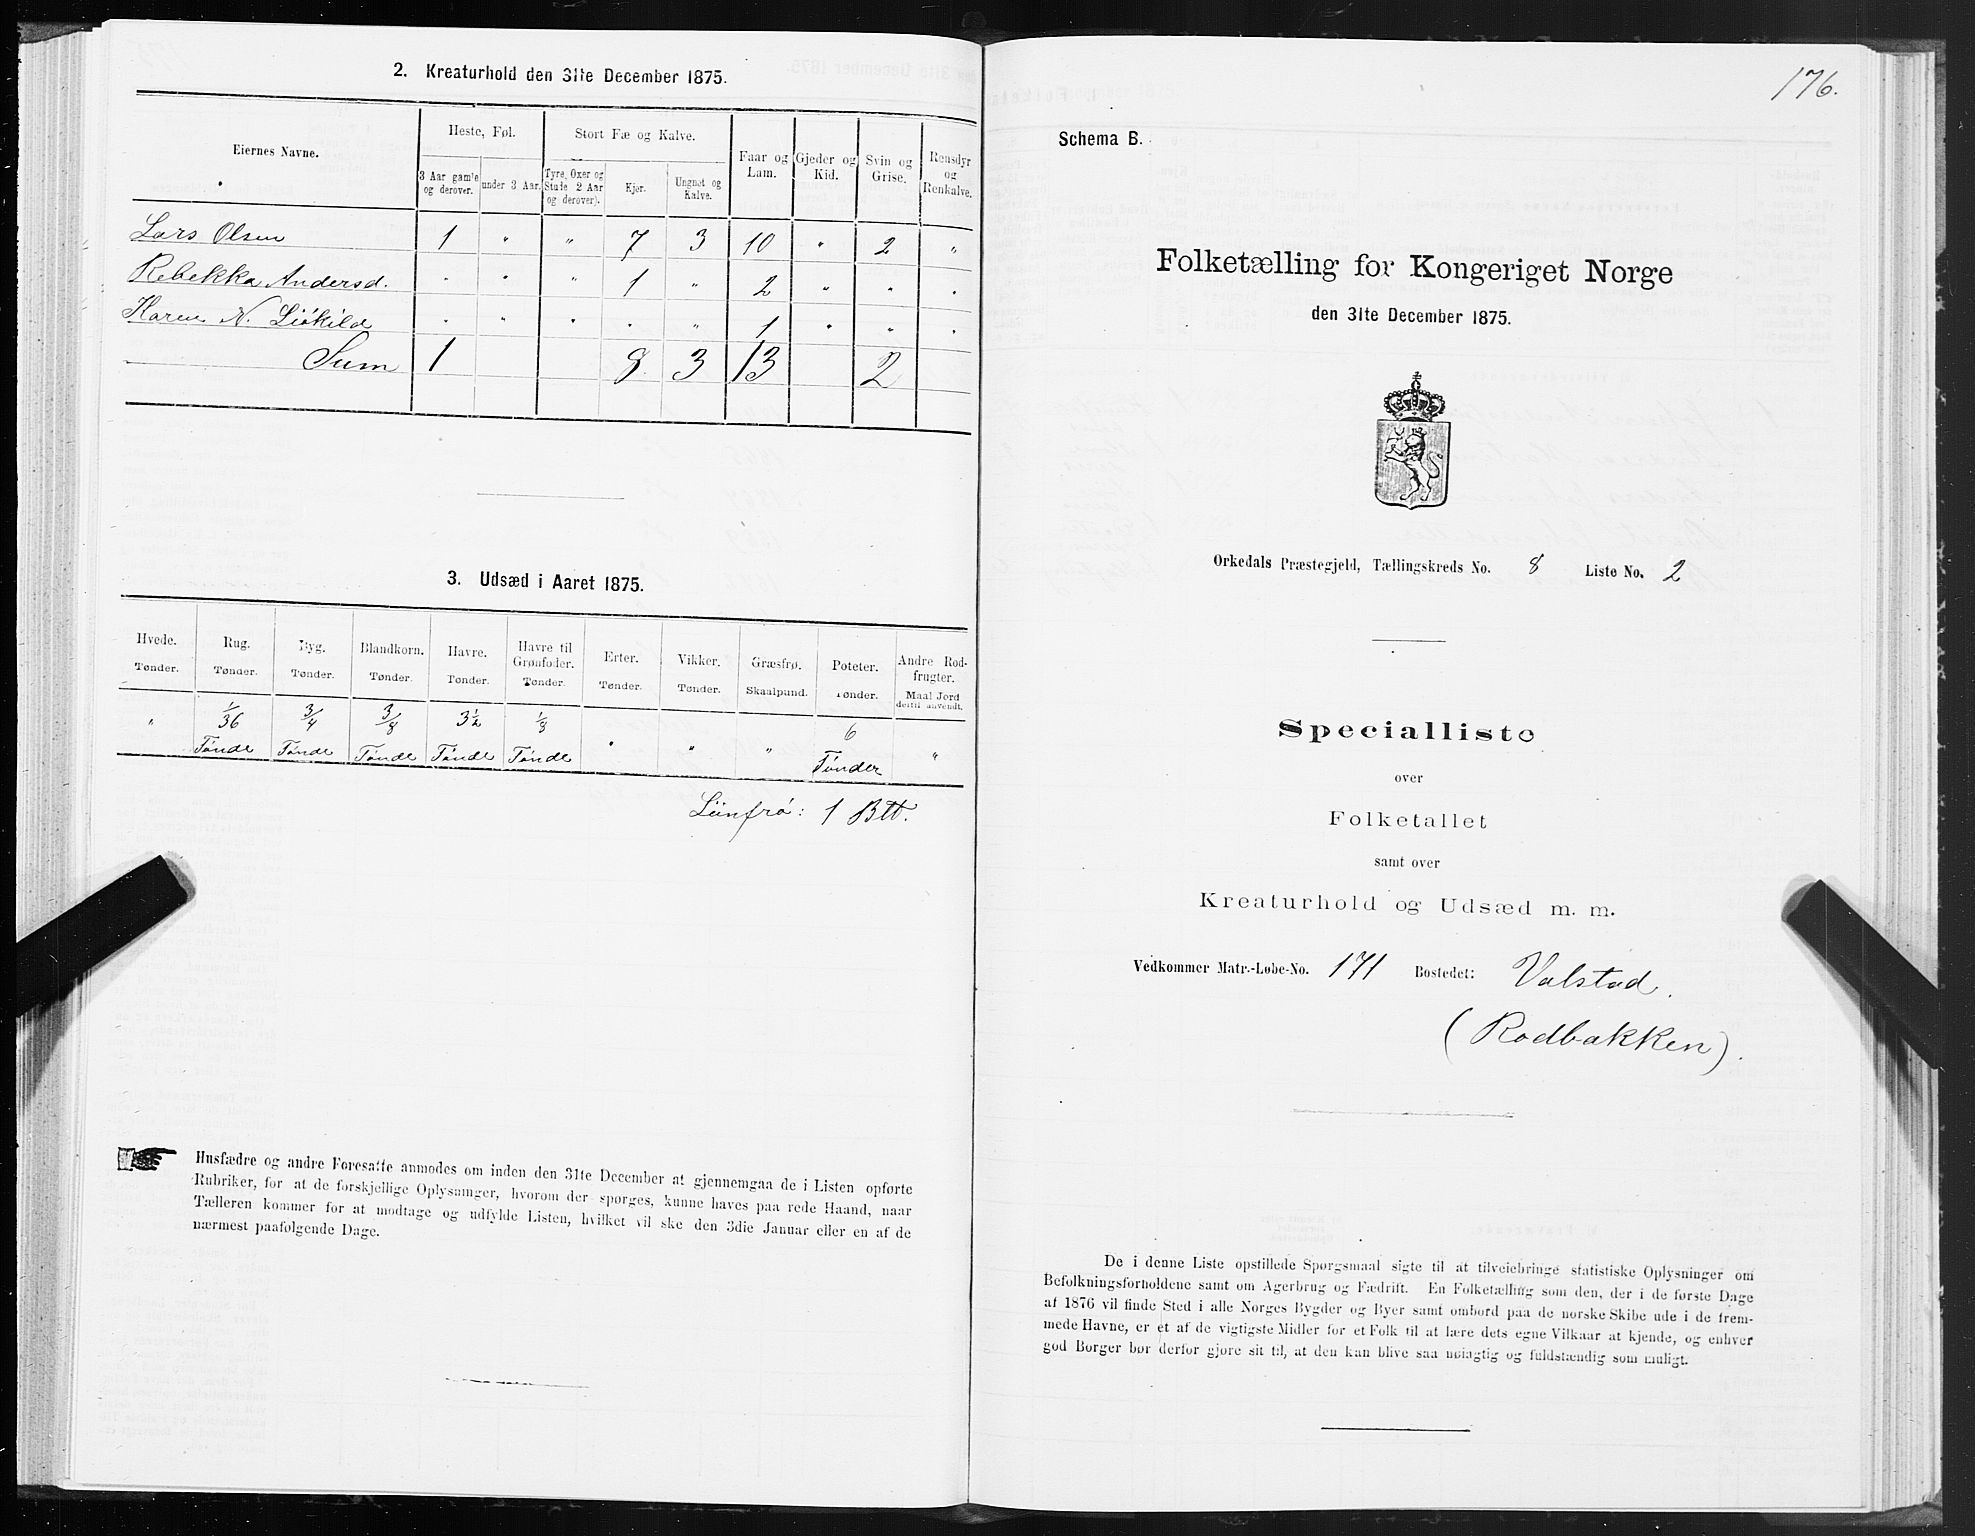 2. Kreaturhold den 31te December 1875.
Eiernes Navne.
Heste, Føl.
3 Aar gamle og derover.
under 3 Aar.
Stort Fæ og Kalve.
Tyre, Oxer og Stude 2 Aar og derover).
Kjer.
Ungnøt og Kalve.
Faar og Lam.
Gjeder og Kid.
Svin og Grise.
Rensdyr og Renkalve.
Lars Olsen 1 " " 7 3 10 " 2 "
Rebekka Andersd. " " " 1 " 2 " " "
Karen N. " " " " " 1 " " "
Sum 1 8 3 13 2
3. Udsæd i Aaret 1875.
Hvede. Tønder.
Rug. Tønder.
Byg. Tønder.
Blandkorn. Tønder.
Havre. Tønder.
Havre til Grønfoder. Tønder.
Erter. Tønder.
Vikker. Tønder.
Græsfrø. Skaalpund.
Poteter. Tønder.
Andre Rodfrugter. Maal Jord dertil anvendt.
" 1/36 3/4 3/8 3 1/2 1/8 " " " 6 "
Tønde Tønde Tønde Tønde Tønde Tønder
Liinfrø: 1 Btt.
Husfædre og andre Foresatte anmodes om inden den 31te December at gjennemgaa de i Listen opførte
Rubriker, for at de forskjellige Oplysninger, hvorom der spørges, kunne haves paa rede Haand, naar
Tælleren kommer for at modtage og udfylde Listen, hvilket vil ske den 3die Januar eller en af de
nærmest paafølgende Dage.
176.
Schema B.
Folketælling for Kongeriget Norge
den 31te December 1875.
Orkedals Præstegjeld, Tællingskreds No. 8 Liste No. 2
Specialliste
over
Folketallet
samt over
Kreaturhold og Udsæd m. m.
Vedkommer Matr.-Løbe-No. 171 Bostedet: Valstad.
(Rodbakken).
De i denne Liste opstillede Spørgsmaal sigte til at tilveiebringe statistiske Oplysninger om
Befolkningsforholdene samt om Agerbrug og Fædrift. En Folketælling som den, der i de første Dage
af 1876 vil finde Sted i alle Norges Bygder og Byer samt ombord paa de norske Skibe ude i de frem-
mede Havne, er et af de vigtigste Midler for et Folk til at lære dets egne Vilkaar at kjende, og enhver
god Borger bør derfor gjøre sit til, at den kan blive saa nøiagtig og fuldstændig som muligt.